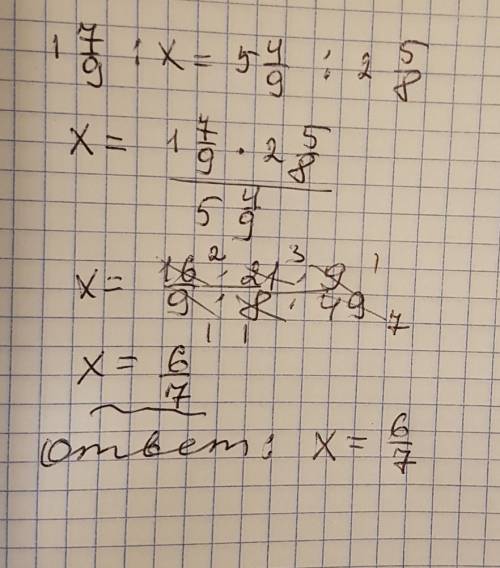 1 7/9 : x = 5 4/9 : 2 5/8
x = (1 7/9 · 2 5/8) / (5 4/9)
x = (16 2 · 21 3 · 9 1) / (9 1 · 8 1 · 49 7)
x = 6/7
Ответ: x = 6/7